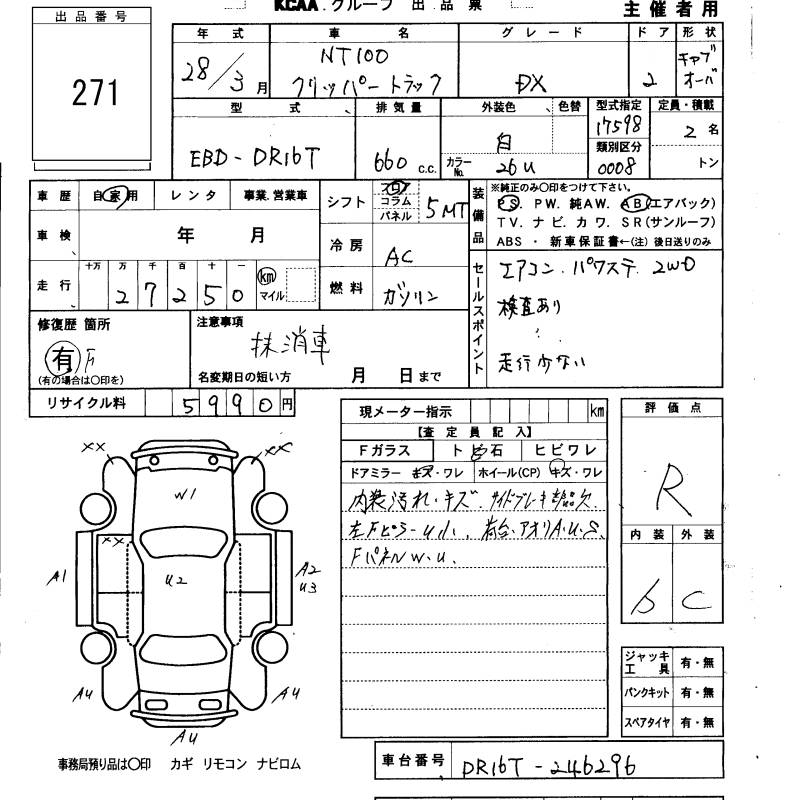 KCAA.グループ 出品票
主催者用
出品番号
271
年式 車名 グレード ドア 形状
28/3月 NT100 クリッパートラック DX 2 キャブオーバ
型式 排気量 外装色 色替 型式指定 定員・積載
17598
EBD-DR16T 660 c.c. 白 類別区分 2名
カラーNo. 26U 0008 トン
車歴 自家用 レンタ 事業.営業車
シフト フロア コラム パネル 5MT
装備品 ※純正のみ〇印をつけて下さい。
PS. PW. 純AW. AB(エアバック)
TV. ナビ. カワ. SR(サンルーフ)
ABS ・ 新車保証書←(注) 後日送りのみ
車検 年 月
冷房 AC
走行 十万 万 千 百 十 一
27250 km マイル
燃料 ガソリン
セールスポイント エアコン.パワステ 2WD
検査あり
走行少ない
修復歴 箇所
有
(有の場合は〇印を)
注意事項
抹消車
名変期日の短い方 月 日まで
リサイクル料 5990円
現メーター指示 km
【査定員記入】
Fガラス トビ石 ヒビワレ
ドアミラー キズ・ワレ ホイール(CP) キズ・ワレ
内装汚れ・キズ.サイドブレーキ部品欠
左Fピラーu小、荷台.アオリA.U.S
FパネルW.u.
評価点
R
内装 外装
b C
ジャッキ工具 有・無
パンクキット 有・無
スペアタイヤ 有・無
XX XX
W1
XX
A1 U2 A2
U3
A4 A4
A4
事務局預り品は〇印 カギ リモコン ナビロム
車台番号 DR16T-246296